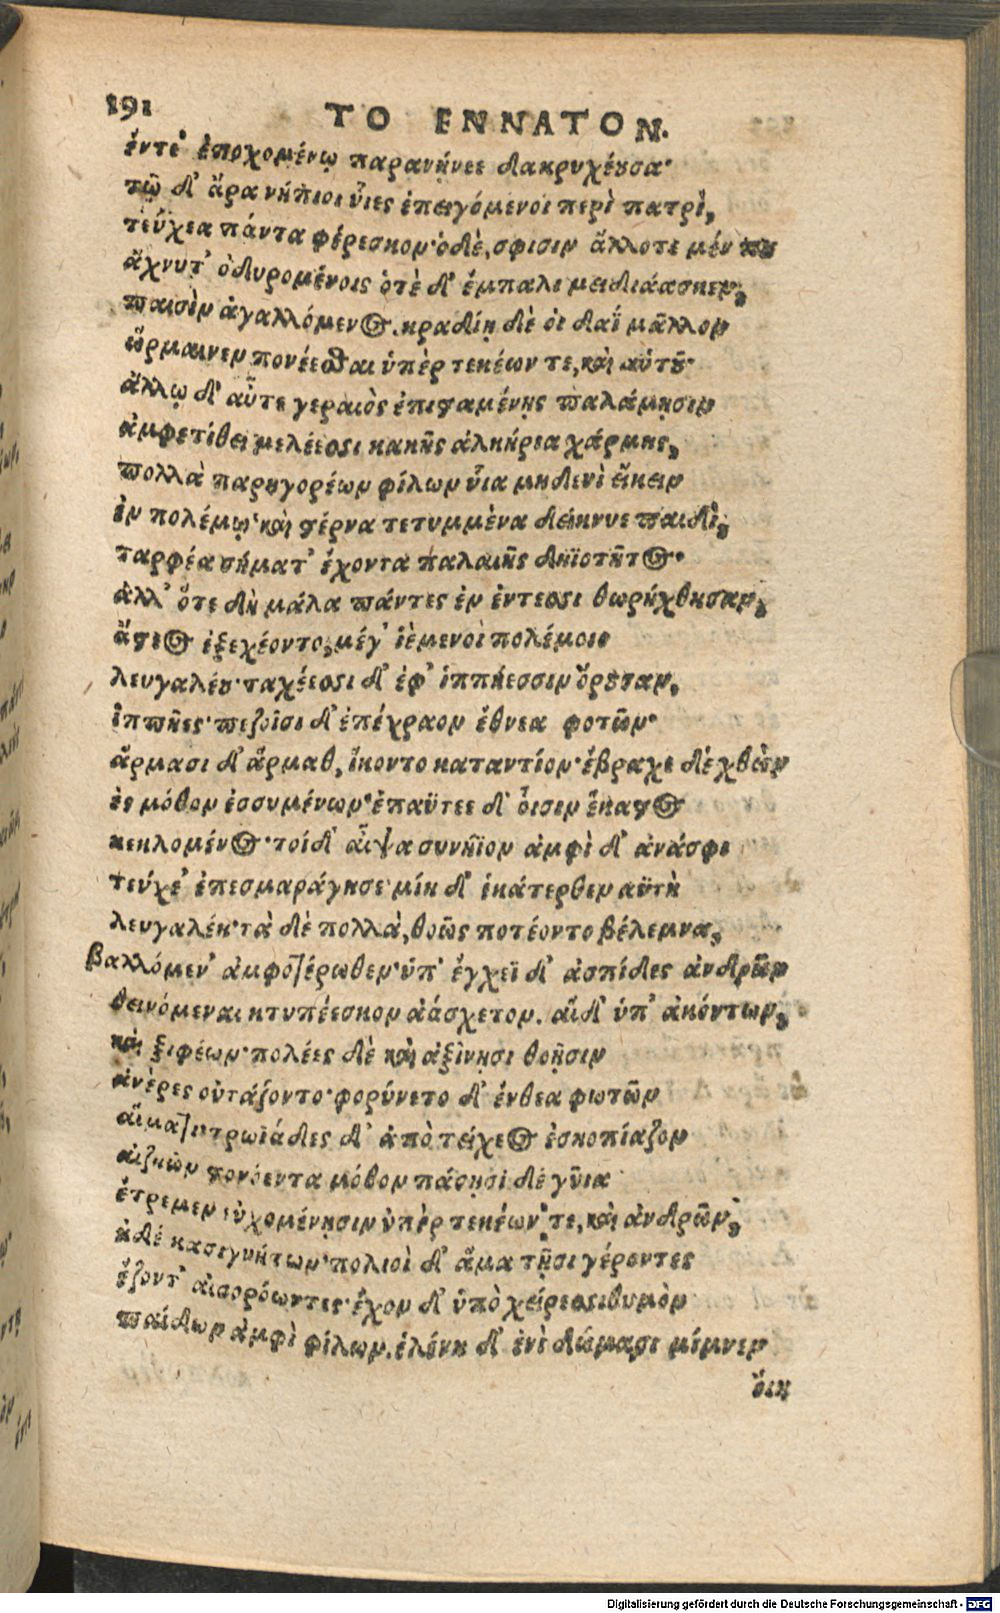 191
ΤΟ ΕΝΝΑΤΟΝ.
ἔντε' ἐποχομένῳ παρανήνεε δακρυχέουσα·
τῷ δ' ἄρα νήπιοι υἷες ἐπειγόμενοι περὶ πατρὶ,
τεύχεα πάντα φέρεσκον· ὁ δὲ, σφισιν ἄλλοτε μέν που
ἄχνυτ' ὀδυρομένοις ὁτὲ δ' ἔμπαλι μειδιάασκεν,
παισὶν ἀγαλλόμενος. κραδίῃ δὲ οἱ δαΐ μᾶλλον
ὥρμαινεν πονέεσθαι ὑπὲρ τεκέων τε, καὶ αὐτοῦ·
ἄλλῳ δ' αὖτε γεραιὸς ἐπισταμένῃς παλάμῃσιν
ἀμφετίθει μελέεσσι κακῆς ἀλκήρια χάρμης,
πολλὰ παρηγορέων φίλων υἷα μηδενὶ εἴκειν
ἐν πολέμῳ· καὶ στέρνα τετυμμένα δείκνυε παιδὶ,
ταρφέα σήματ' ἔχοντα παλαιῆς δηϊοτῆτος·
ἀλλ' ὅτε δὴ μάλα πάντες ἐν ἔντεσσι θωρήχθησαν,
ἄστεος ἐξεχέοντο, μέγ' ἱέμενοὶ πολέμοιο
λευγαλέου· ταχέεσσι δ' ἐφ' ἱππήεσσιν ὄρουσαν,
ἱππῆες· πεζοῖσι δ' ἐπέχραον ἔθνεα φοτῶν·
ἅρμασι δ' ἅρμαθ, ἵκοντο καταντίον· ἔβραχε δὲ χθὼν
ἐς μόθον ἐσσυμένων· ἐπαΰτεε δ' οἷσιν ἕκαστος
κεκλομένος· τοὶ δ' αἶψα συνήϊον ἀμφὶ δ' ἀνάσφι
τεύχε' ἐπεσμαράγησε· μίκ δ' ἑκάτερθεν αϋτὴ
λευγαλέη· τὰ δὲ πολλὰ, θοῶς ποτέοντο βέλεμνα,
βαλλόμεν' ἀμφοτέρωθεν· ὑπ' ἔγχεϊ δ' ἀσπίδες ἀνδρῶν
θεινόμεναι κτυπέεσκον ἀάσχετον. αἵ δ' ὑπ' ἀκόντων,
καὶ ξιφέων· πολέες δὲ καὶ ἀξίνῃσι θοῇσιν
ἀνέρες οὐτάζοντο· φορύνετο δ' ἔνθεα φωτῶν
αἵματι τρωϊάδες δ' ἀπὸ τείχεος ἐσκοπίαζον
αἰζηῶν στονόεντα μόθον πάσῃσι δὲ γῦια
ἔτρεμεν εὐχομένῃσιν ὑπὲρ τεκέων τε, καὶ ἀνδρῶν,
ἠδὲ κασιγνήτων· πολιοὶ δ' ἅμα τῇσι γέροντες
ἕζοντ' αἰσορόωντες· ἔχον δ' ὑπὸ χείρεσσι θυμὸν
παίδων ἀμφὶ φίλων. ἑλένη δ' ἐνὶ δώμασι μίμνεν
ὄικ